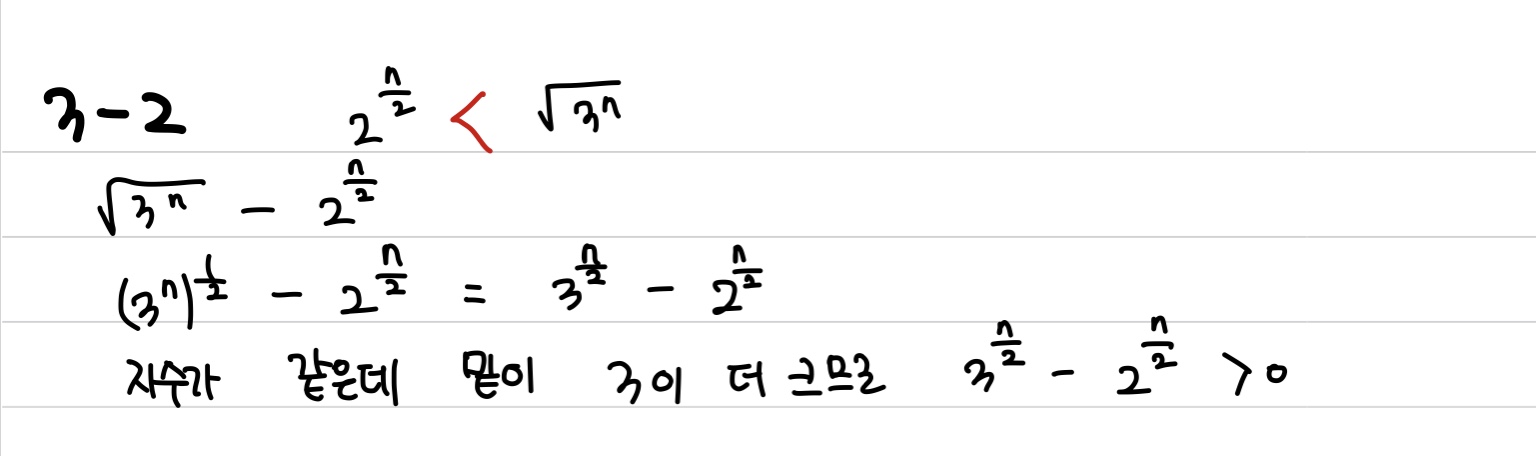 3-2 2^{n/2} < √(3^n)
√(3^n) - 2^{n/2}
(3^n)^{1/2} - 2^{n/2} = 3^{n/2} - 2^{n/2}
지수가 같은데 밑이 3이 더 크므로 3^{n/2} - 2^{n/2} > 0